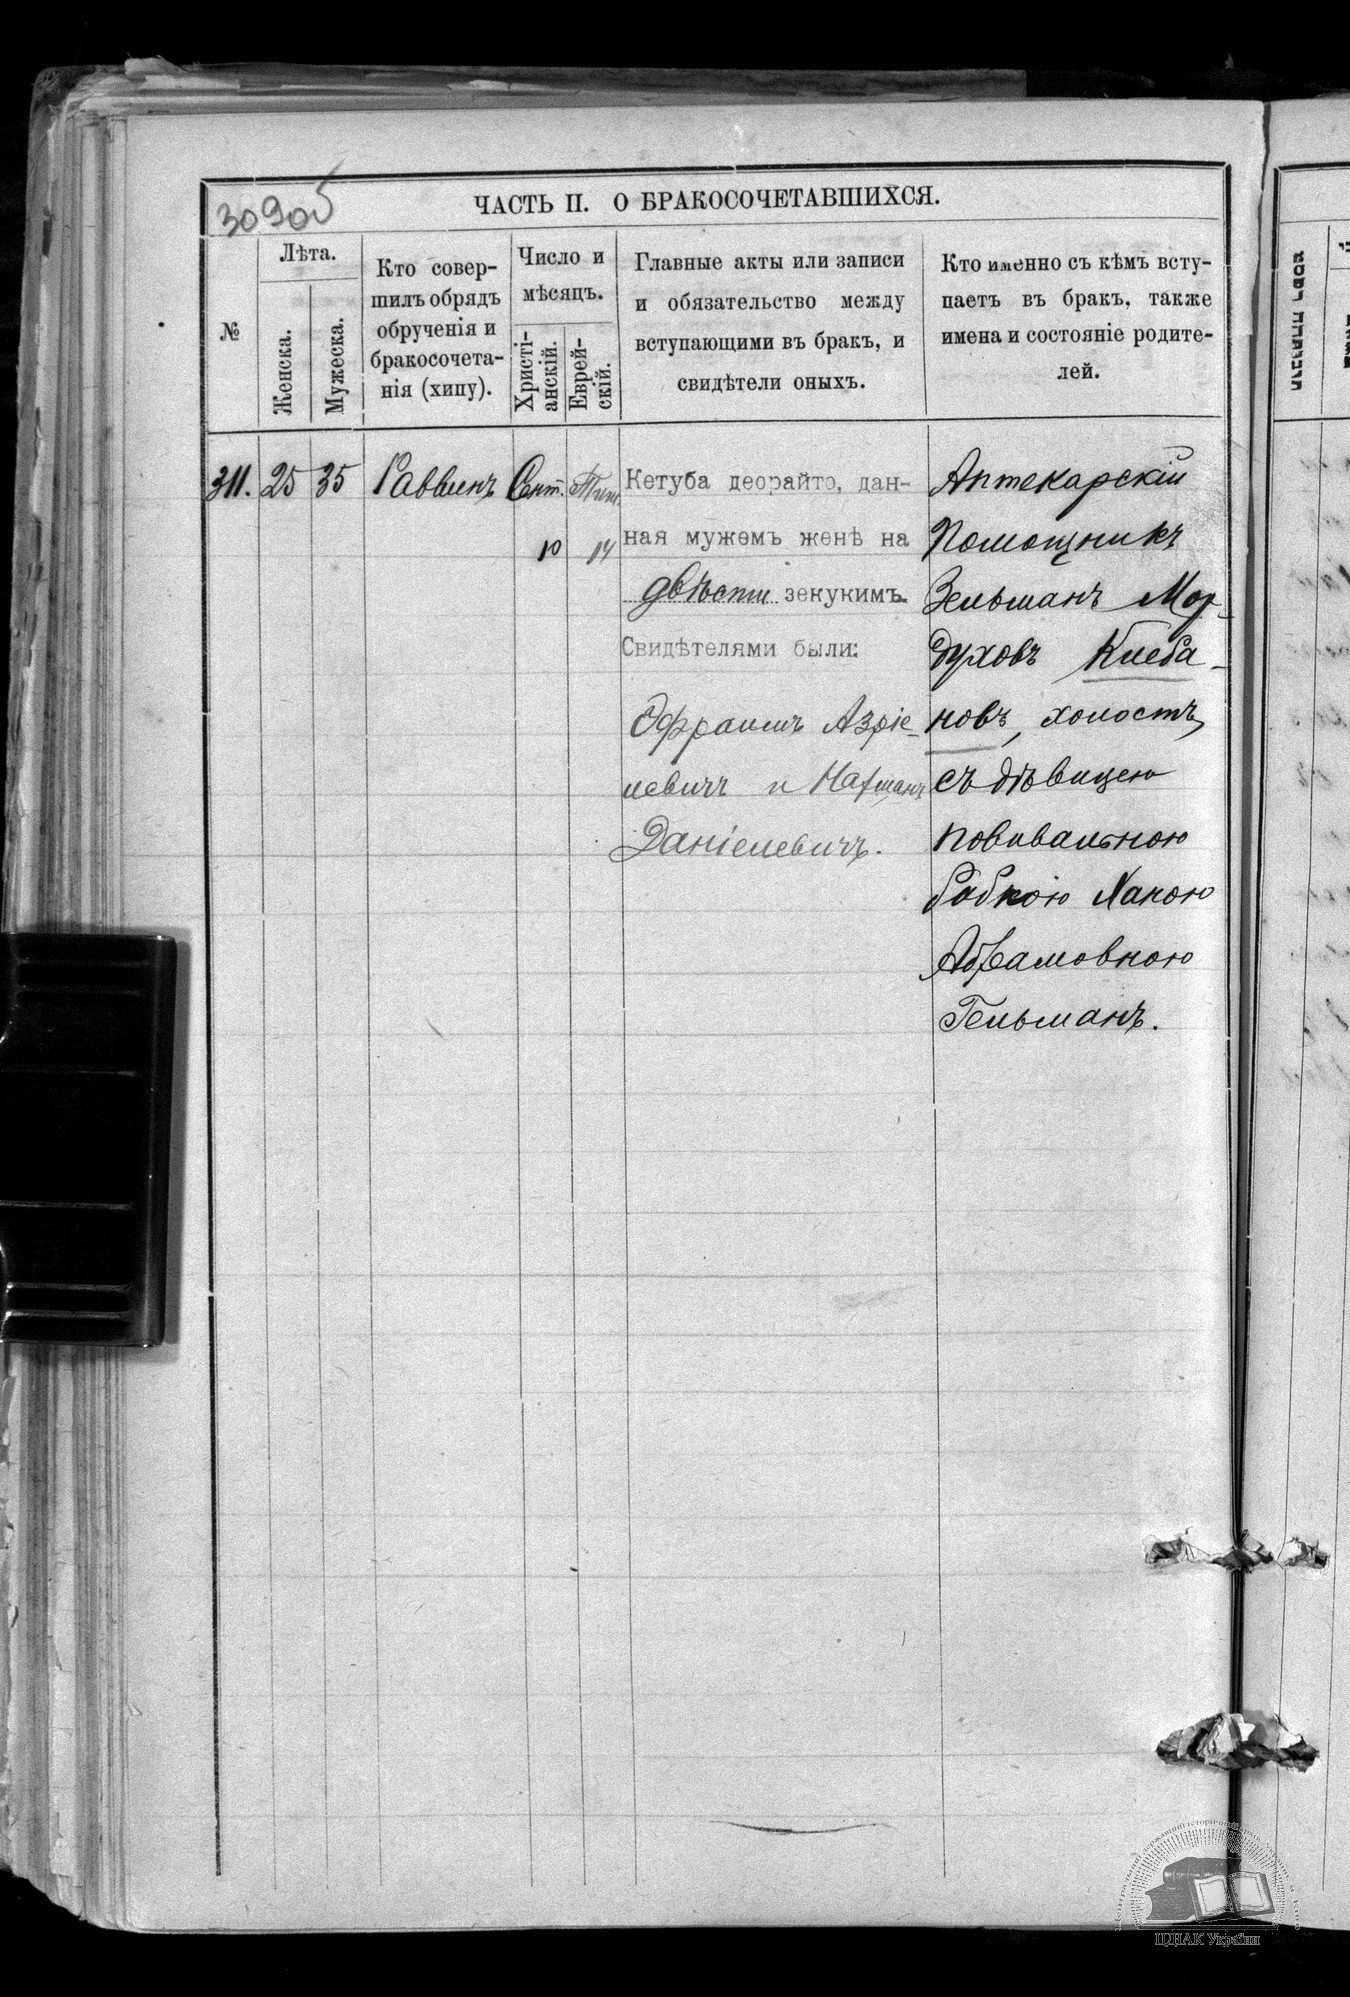 309об
ЧАСТЬ II. О БРАКОСОЧЕТАВШИХСЯ.
№
Лѣта.
Женска.
Мужеска.
Кто совер-
шилъ обрядъ
обрученія и
бракосочета-
нія (хипу).
Число и
мѣсяцъ.
Христі-
анскій.
Еврей-
скій.
Главные акты или записи
и обязательство между
вступающими въ бракъ, и
свидѣтели оныхъ.
Кто именно съ кѣмъ всту-
паетъ въ бракъ, также
имена и состояніе родите-
лей.
311.
25
35
Раввинъ
Сент.
10
Тиш.
14
Кетуба деорайто, дан-
ная мужемъ женѣ на
двѣсти зекукимъ.
Свидѣтелями были:
Эфраимъ Азріе-
левичъ и Нахманъ
Даніелевичъ.
Аптекарскій
Помощникъ
Зельманъ Мор-
духовъ Клеба-
новъ, холостъ,
съ дѣвицею
повивальною
бабкою Ханою
Абрамовною
Гельманъ.
ЦДІАК України